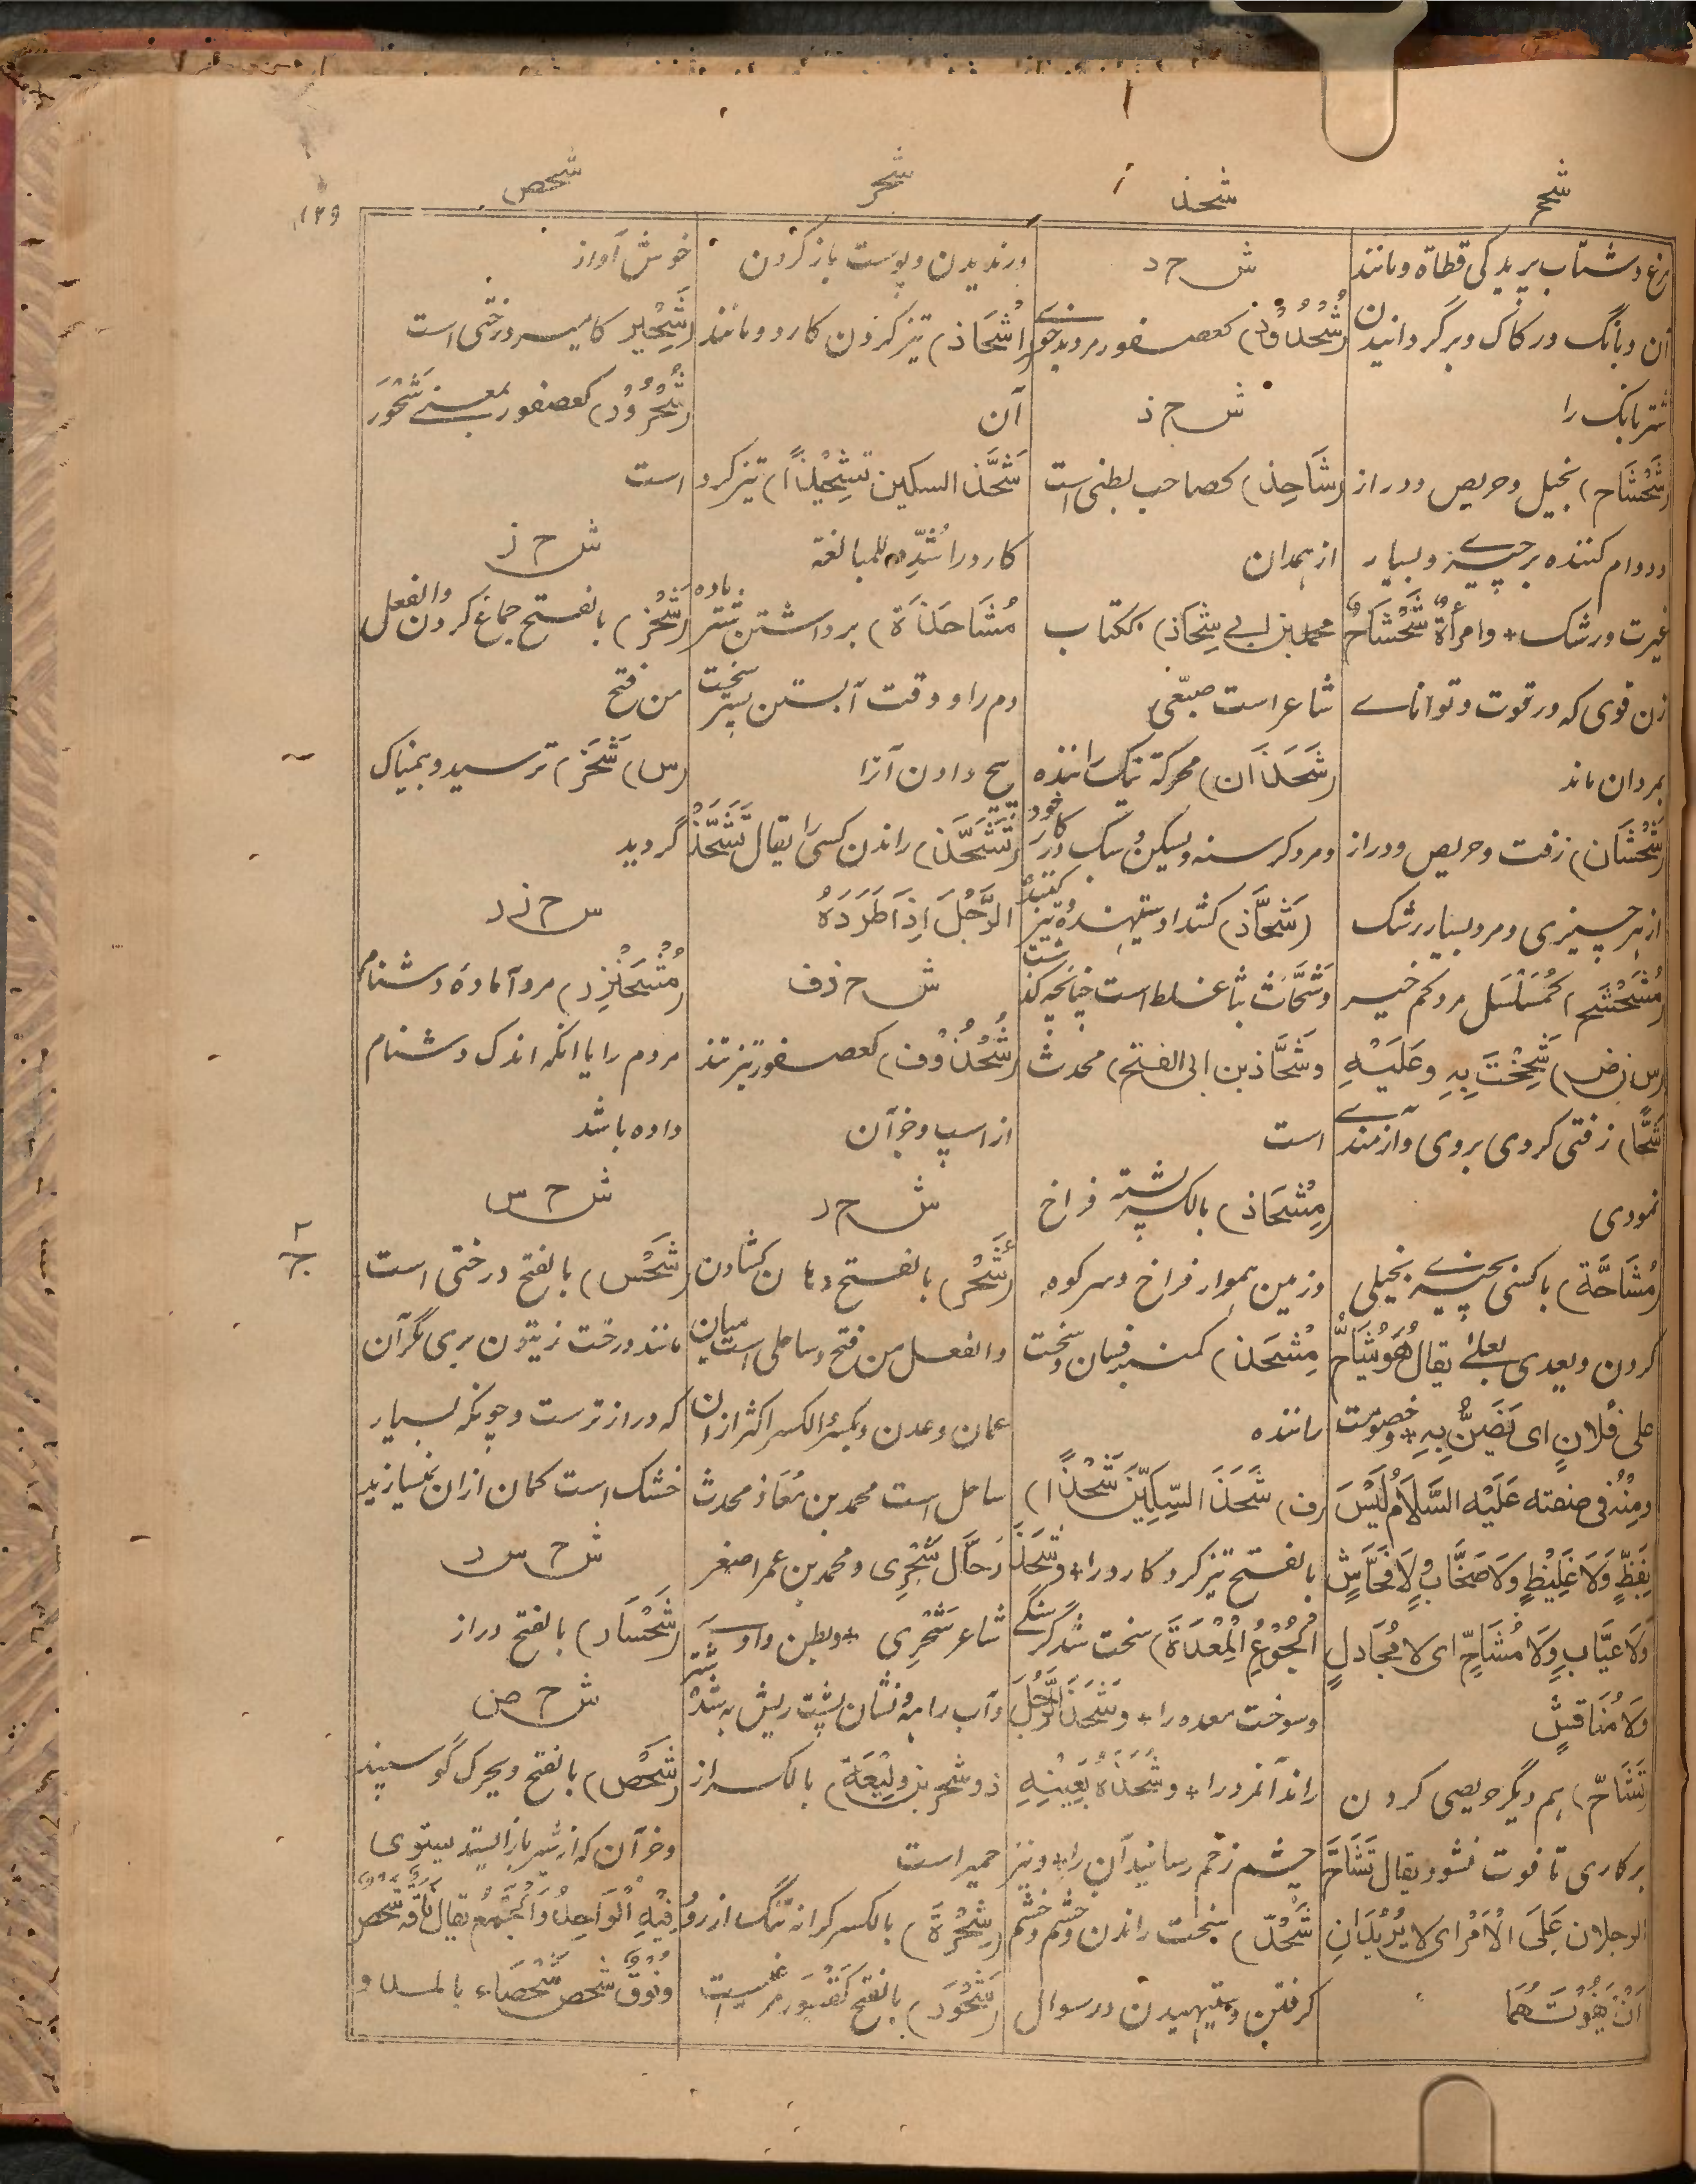 شحح
شحذ
شحر
شحص
۱۲۹
مرغ و شتاب پریدگی قطاة و مانند
آن و بانگ در کاک و برگردانیدن
شتر بانگ را
(شَحْشَاح) بخیل و حریص و دراز
و دوام کننده بر چیزے و بسیار
غیرت و رشک + وامرأة شَحْشَاحٌ
زن قوی که در قوت و توانائے
بمردان ماند
(شَحْشَان) زفت و حریص و دراز
از هر چیزی و مرد بسیار رشک
(مُشَحْشَح) کمُسَلْسَل مرد کم خیر
(س ن ض) شَحِحْتَ بِهِ وعَلَیْهِ
شَحًّا) زفتی کردی بروی و آزمندے
نمودی
(مُشَاحَّة) با کسی بچیزے بخیلی
کردن ویعدی بعلیٰ یقال هُوَیُشَاحُّ
علی فُلانٍ ای یَضَنُّ بِهِ + وخصومت
ومِنْهُ فی صفته عَلَیْه السَّلَامُ لَیْسَ
بِفَظٍّ وَلَا غَلِیْظٍ وَلَا صَخَّابٍ وَلَا فَحَّاشٍ
وَلَا عَیَّابٍ وَلَا مُشَاحٍّ ای لا مُجَادلٍ
وَلَا مُنَاقشٍ
(تَشَاحّ) بهم دیگر حریصی کردن
بر کاری تا فوت نشود یقال تَشَاحَّ
الرجلان عَلَی الْاَمْرِ ای لا یُرِیْدَانِ
اَنْ یَفُوْتَهُمَا
ش ح د
(شُحْدُوْد) کعصفور مرد بدخوے
ش ح ذ
(شَاحِذ) کصاحب بطنی است
از همدان
محمد بن ابے شِحَاذ) ککتاب
شاعر است ضبّی
(شَحَذَان) محرکة نیک راننده
ومرد گرسنه وبسکن سبک در کار خود
(شَحَّاذ) کشداد ستیهنده تیز کننده
وشَحَّاث بثا غلط است چنانچه گذشت
وشَحَّاذ بن ابی الفتح) محدث
است
(مِشْحَاذ) بالکسر پشته فراخ
وزمین هموار فراخ وسر کوه
مِشْحَذ) کمنبر فسان و سخت
راننده
(ف) شَحَذَ السِّکِّیْنَ شَحْذًا)
بالفتح تیز کرد کارد را + وشَحَذَ
الْجُوْعُ الْمِعْدَةَ) سخت شد گرسنگے
وسوخت معده را + وشَحَذَ الرَّجُلَ
راند آنمرد را + وشَحَذَهُ بِعَیْنِهِ
چشم زخم رسانید آن را + ونیز
شَحْذ) بسخت راندن وخشم وخشم
گرفتن وستیهیدن در سوال
ورندیدن وپوست باز کردن
(اِشْحَاذ) تیز کردن کارد ومانند
آن
شَحَّذَ السکین تَشْحِیْذًا) تیز کرد
کارد را شُدِّدَ للمبالغة
مُشَاحَذَة) برداشتن شتر ماده
دم را در وقت آبستن بسر سخت
پیچ دادن آنرا
(تَشَحَّذ) راندن کسی را یقال تَشَحَّذَ
الرَّجُلَ اِذَا طَرَدَهُ
ش ح ذ ف
(شُحْذُوْف) کعصفور تیز تند
از اسپ وخر آن
ش ح ر
(شَحْر) بالفتح دهان کشادن
والفعل من فتح وساحلی است میان
عمان وعدن ویکسر الکسر اکثر ازان
ساحل است محمد بن مُعَاذ محدث
رَحَّال شَحْرِی ومحمد بن عمر اصغر
شاعر شَحْرِی + وبطن وادے
وآب راهه ونشان پشت ریش به شده شتر
ذو شحر بن وَلِیْعَة) بالکسر از
حمیر است
(شِحْرَة) بالکسر کرانه تنگ از رود
(شَحُّوْر) بالفتح کتنور مرغیست
خوش آواز
(شَحِیْر) کامیر درختی است
(شُحْرُوْر) کعصفور بمعنے شَحُّوْر
است
ش ح ز
(شَحْز) بالفتح جماع کردن والفعل
من فتح
(س) شَحَز) ترسید و بیمناک
گردید
ش ح ز د
(مُشْحَئِزد) مرد آماده دشنام
مردم را یا آنکه اندک دشنام
داده باشد
ش ح س
(شَحْس) بالفتح درختی است
مانند درخت زیتون بری مگر آن
که دراز ترست وچونکه بسیار
خشک است کمان ازان نمیسازند
ش ح س د
(شَحْسَاد) بالفتح دراز
ش ح ص
(شَحْص) بالفتح ویحرک گوسپند
وخر آن که از شیر باز ایستد یستوی
فِیْهِ الْوَاحِدُ وَالْجَمْعُ یقال نَاقَةٌ شَحْصٌ
ونُوْقٌ شَحْصٌ شَحْصَاء بالمد و
۲
ج